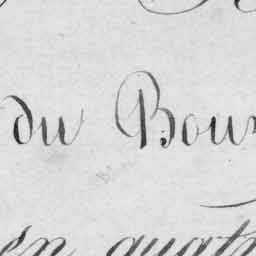 du Bour
en quatr